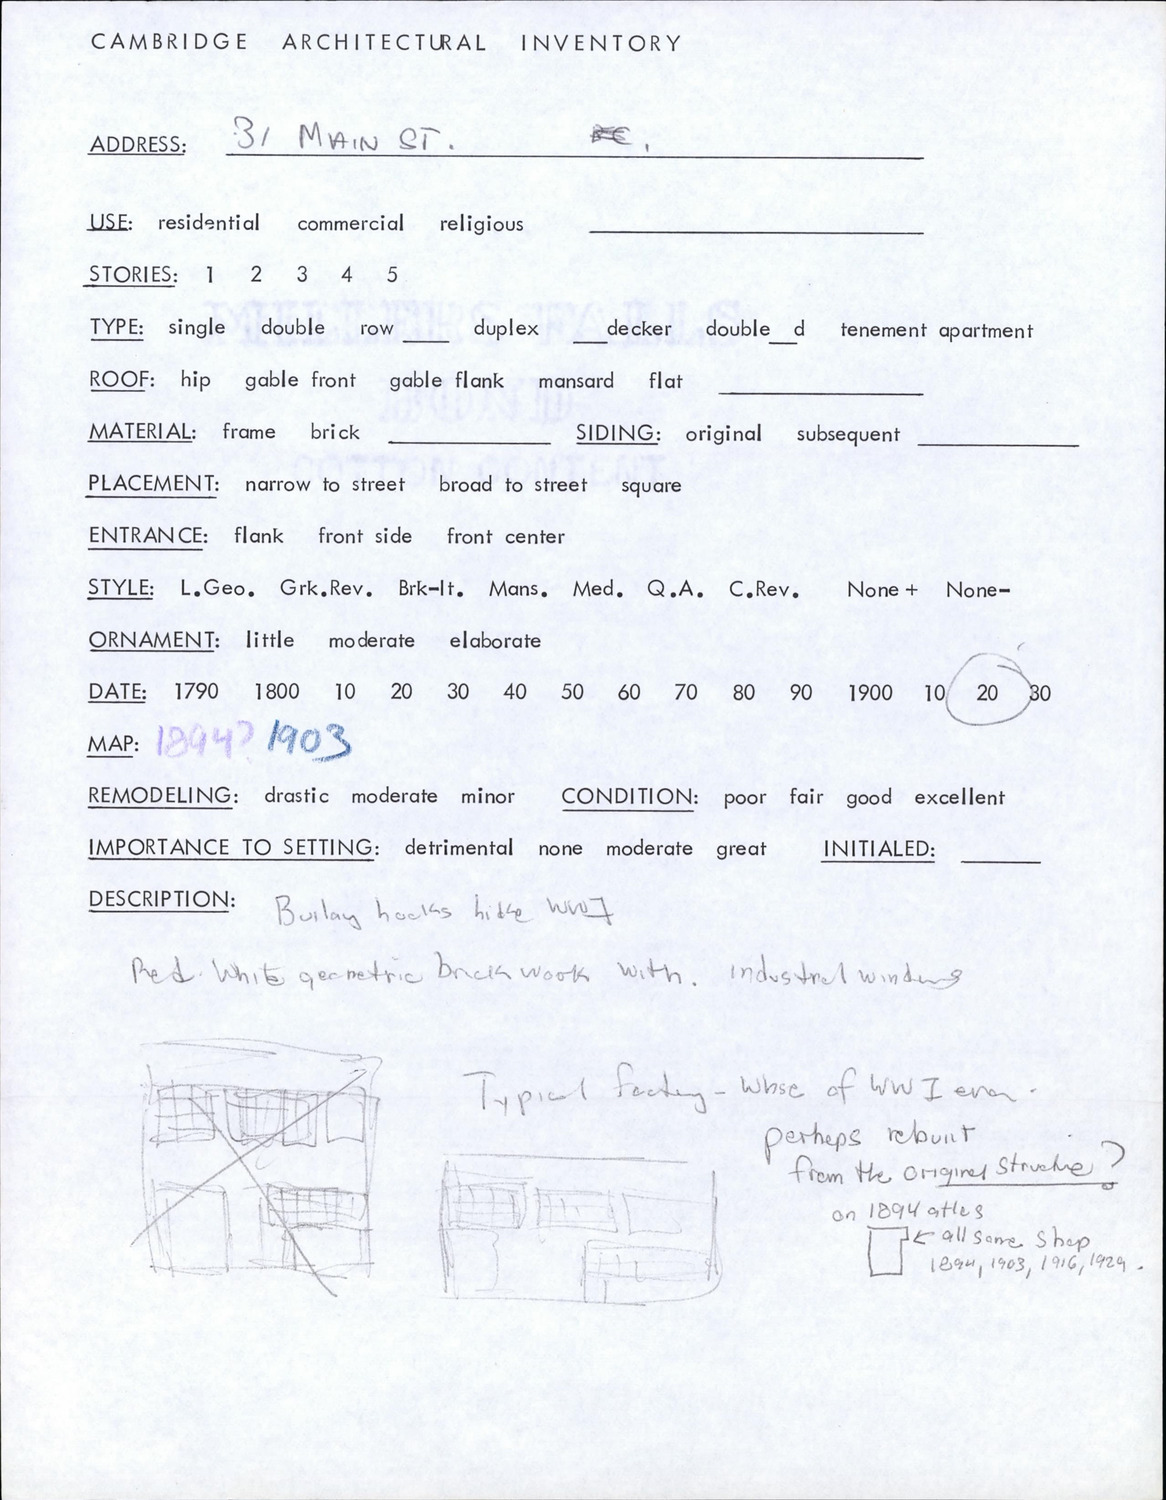 CAMBRIDGE ARCHITECTURAL INVENTORY
ADDRESS: 31 MAIN ST.
USE: residential commercial religious
STORIES: 1 2 3 4 5
TYPE: single double row ___ duplex ___ decker double__d tenement apartment
ROOF: hip gable front gable flank mansard flat
MATERIAL: frame brick SIDING: original subsequent
PLACEMENT: narrow to street broad to street square
ENTRANCE: flank front side front center
STYLE: L.Geo. Grk.Rev. Brk-It. Mans. Med. Q.A. C.Rev. None + None-
ORNAMENT: little moderate elaborate
DATE: 1790 1800 10 20 30 40 50 60 70 80 90 1900 10 20 30
MAP: 1894? 1903
REMODELING: drastic moderate minor CONDITION: poor fair good excellent
IMPORTANCE TO SETTING: detrimental none moderate great INITIALED:
DESCRIPTION: WWI
Red White geometric brick work with. industrial windows
Typical factory - Whse of WW I era.
perhaps rebuilt
from the original structure?
on 1894 atlas
← all same shap
1894, 1903, 1916, 1929.
MILLERS FALLS
BOND
COTTON CONTENT